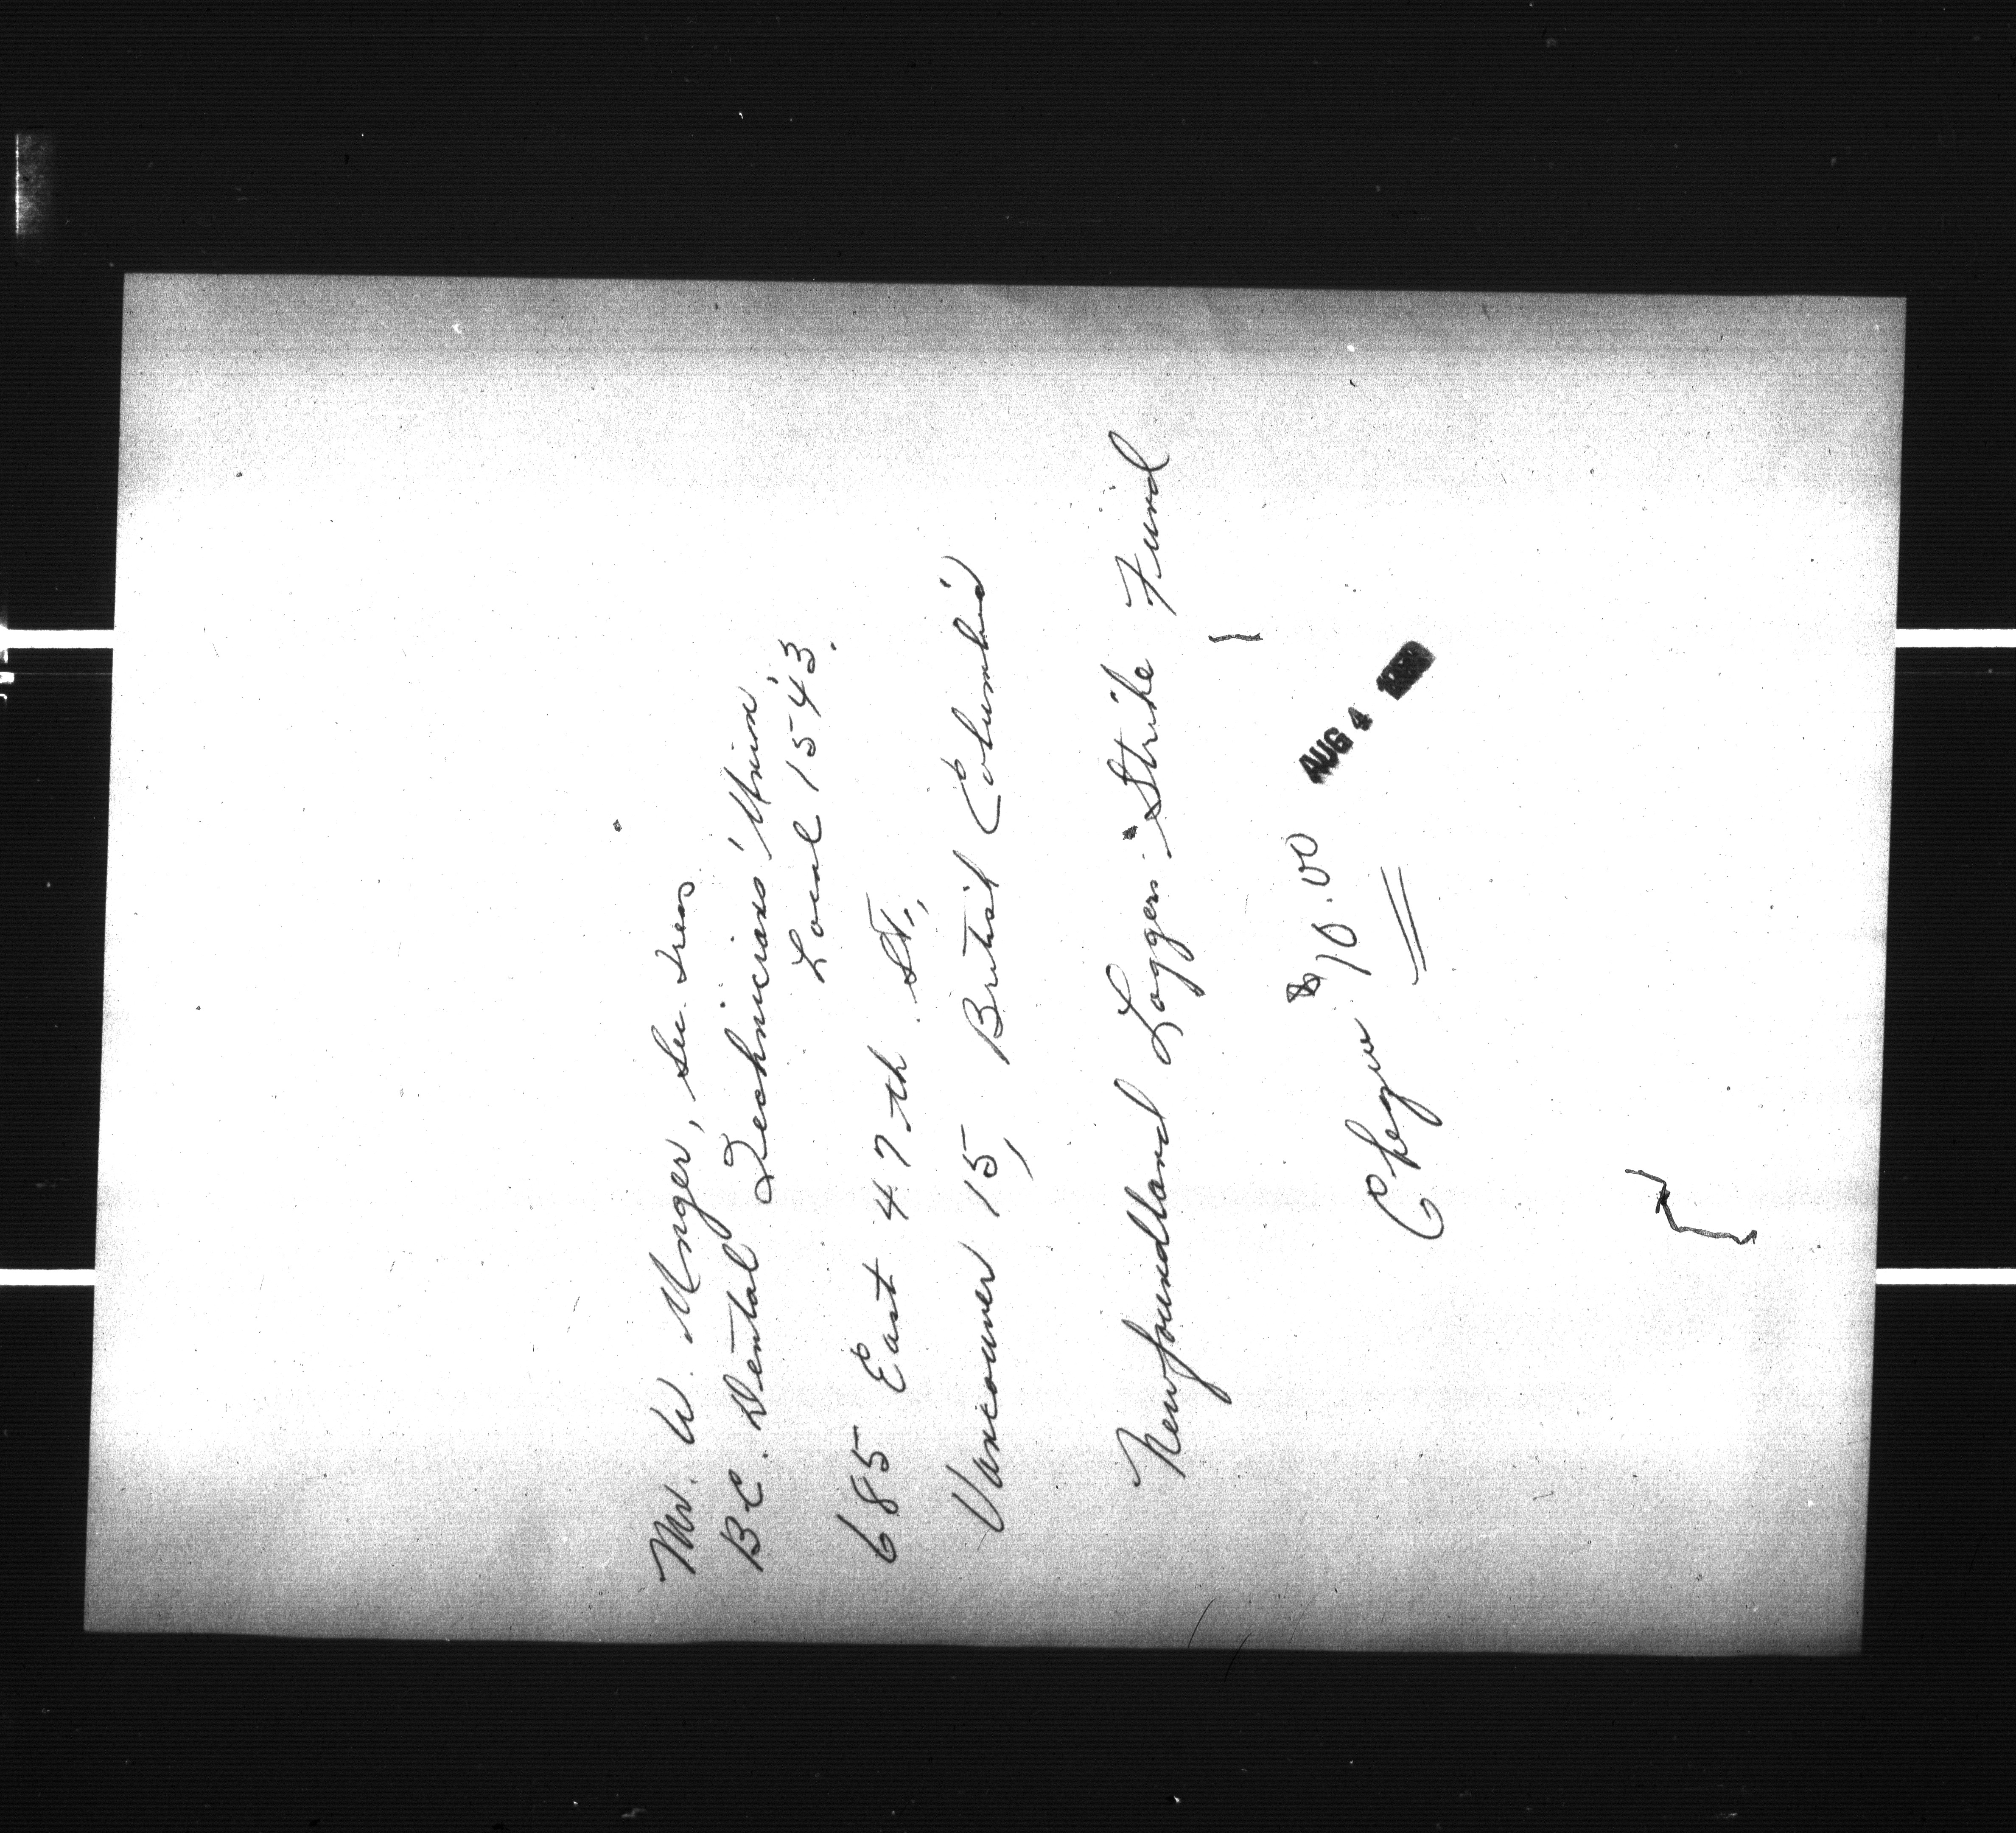 Mr. W. Unger, Sec. Treas.
B.C. Dental Technicians' Union,
Local 1543.
685 East 47th St.,
Vancouver 15, British Columbia
Newfoundland Loggers' Strike Fund
$10.00
AUG 4